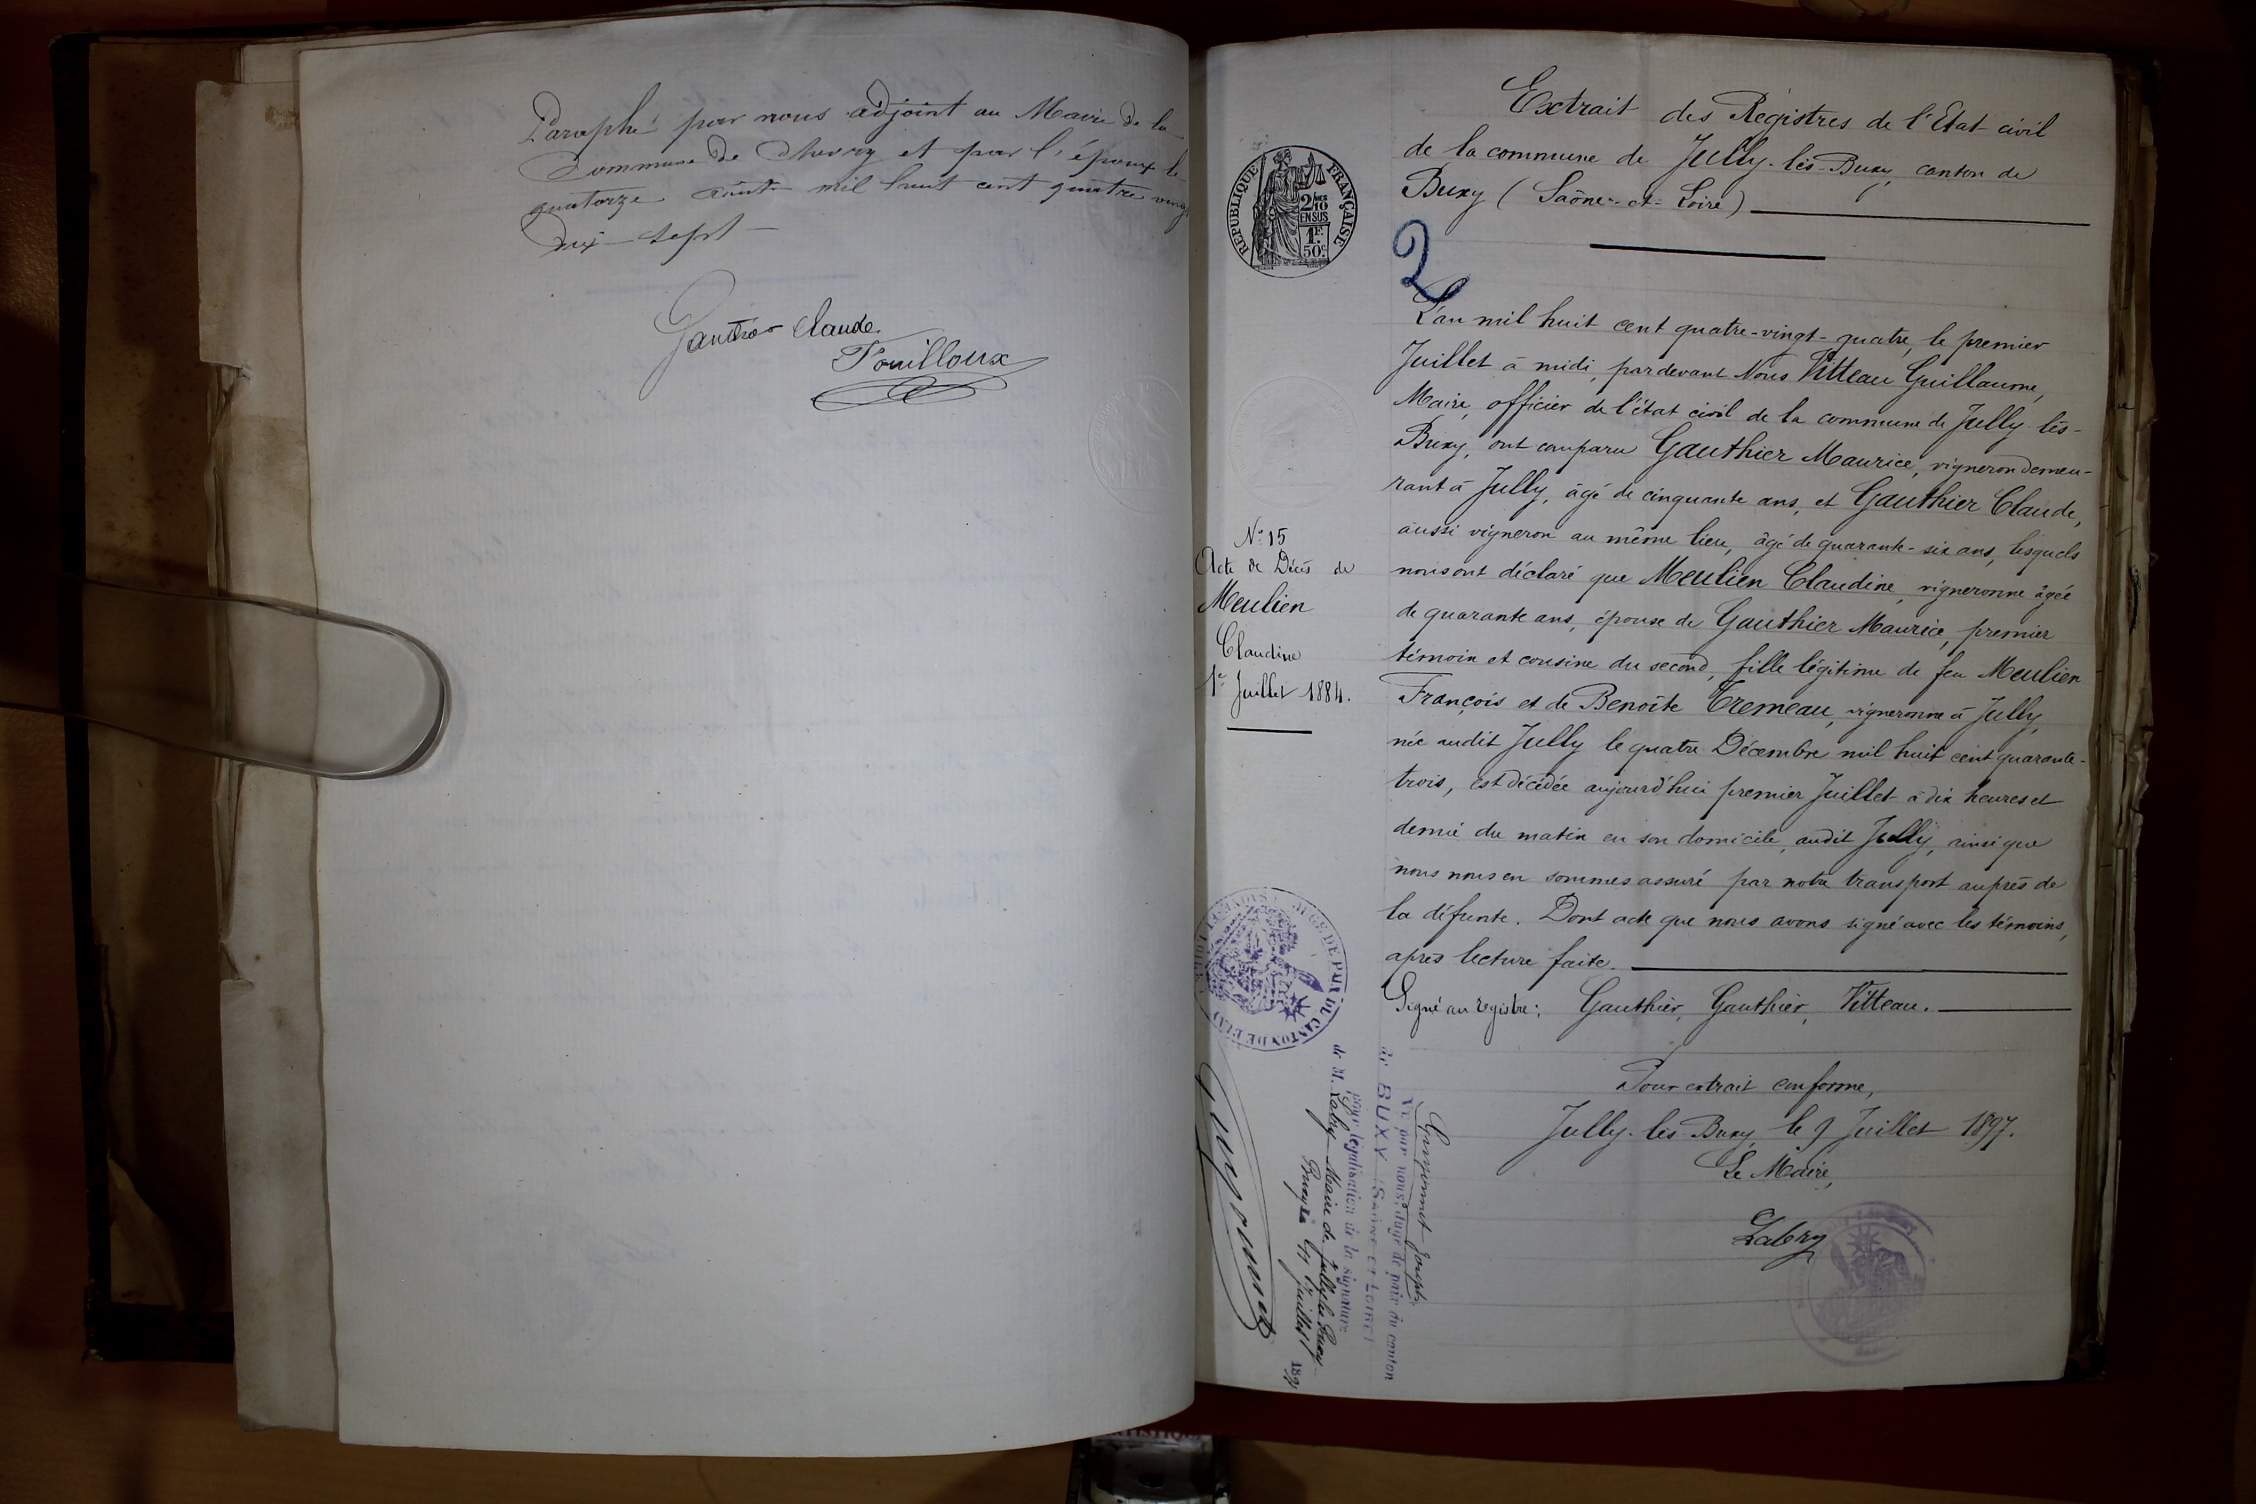 Paraphé par nous adjoint au Maire de la
Commune de et par l'époux le
quatorze août mil huit cent quatre vingt
dix-sept
Gauthier Claude.
Fouilloux
Extrait des Régistres de l'Etat-civil
de la commune de Jully-lès-Buxy, canton de
Buxy (Saône-et-Loire)
RÉPUBLIQUE FRANÇAISE
2/10 EN SUS
1F. 50c.
2
L'an mil huit cent quatre-vingt-quatre, le premier
Juillet à midi, pardevant Nous Vitteau Guillaume,
Maire, officier de l'état civil de la commune de Jully-lès-
Buxy, ont comparu Gauthier Maurice, vigneron demeu-
rant à Jully, âgé de cinquante ans, et Gauthier Claude,
aussi vigneron au même lieu, âgé de quarante-six ans, lesquels
nous ont déclaré que Meulien Claudine, vigneronne âgée
de quarante ans, épouse de Gauthier Maurice, premier
témoin et cousine du second, fille légitime de feu Meulien
François et de Benoite Tremeau, vigneronne à Jully,
née audit Jully le quatre Décembre mil huit cent quarante-
trois, est décédée aujourd'hui premier Juillet à dix heures et
demie du matin en son domicile, audit Jully, ainsi que
nous nous en sommes assuré par notre transport auprès de
la défunte. Dont acte que nous avons signé avec les témoins,
après lecture faite.
Signé au registre: Gauthier, Gauthier, Vitteau.
Pour extrait conforme,
Jully-lès-Buxy, le 9 Juillet 1897.
Le Maire,
Labry
N° 15
Acte de Décès de
Meulien
Claudine
1er Juillet 1884.
JUGE DE PAIX DU CANTON DE BUXY
Guyonnet Joseph
Vu par nous, Juge de paix du canton
de BUXY (SAONE-ET-LOIRE)
pour légalisation de la signature
de M. Labry Maire de Jully lès Buxy
Buxy le Juillet 1897
Guyonnet